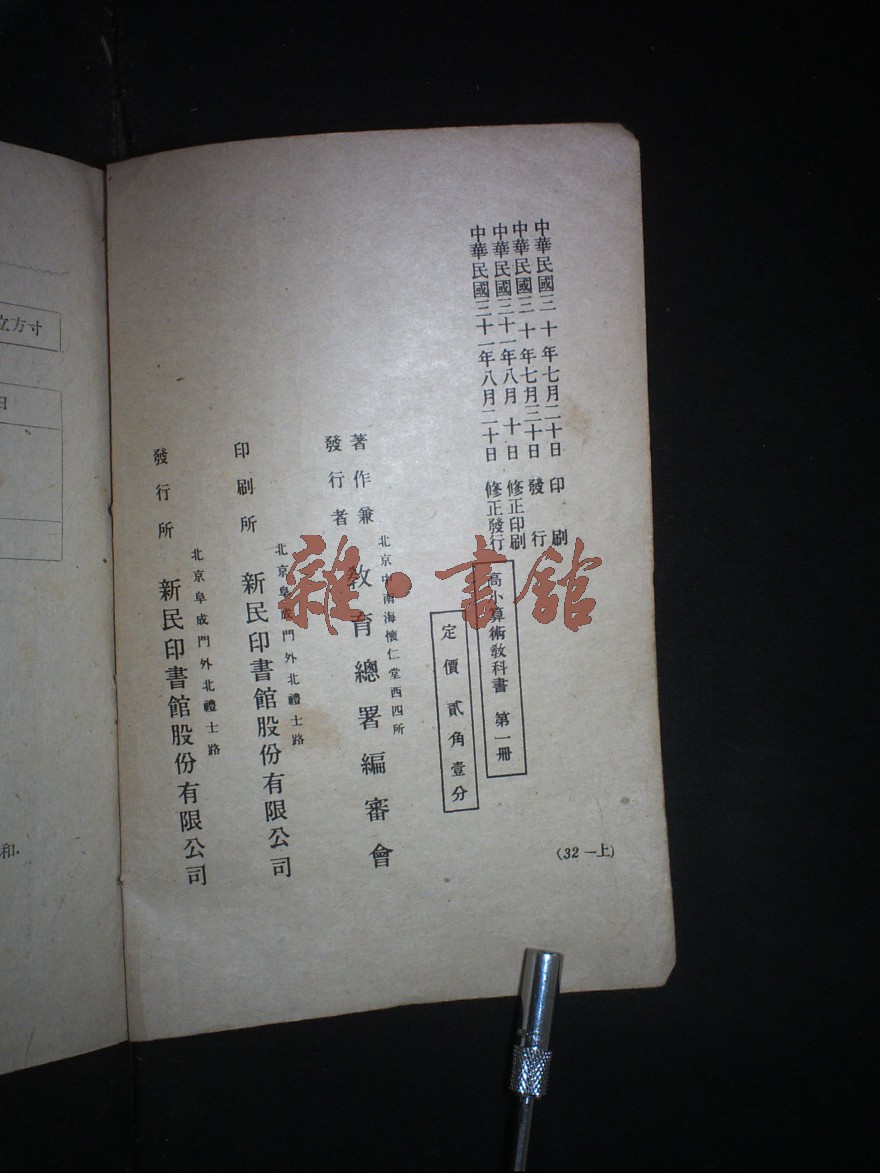 中華民國三十年七月二十日 印刷
中華民國三十年七月三十日 發行
中華民國三十一年八月十日 修正印刷
中華民國三十一年八月二十日 修正發行
高小算術教科書 第一冊
定價 貳角壹分
著作兼
發行者
北京中南海懷仁堂西四所
教育總署編審會
印刷所
北京阜成門外北禮士路
新民印書館股份有限公司
發行所
北京阜成門外北禮士路
新民印書館股份有限公司
(32—上)
雜·書館
立方寸
日
和.